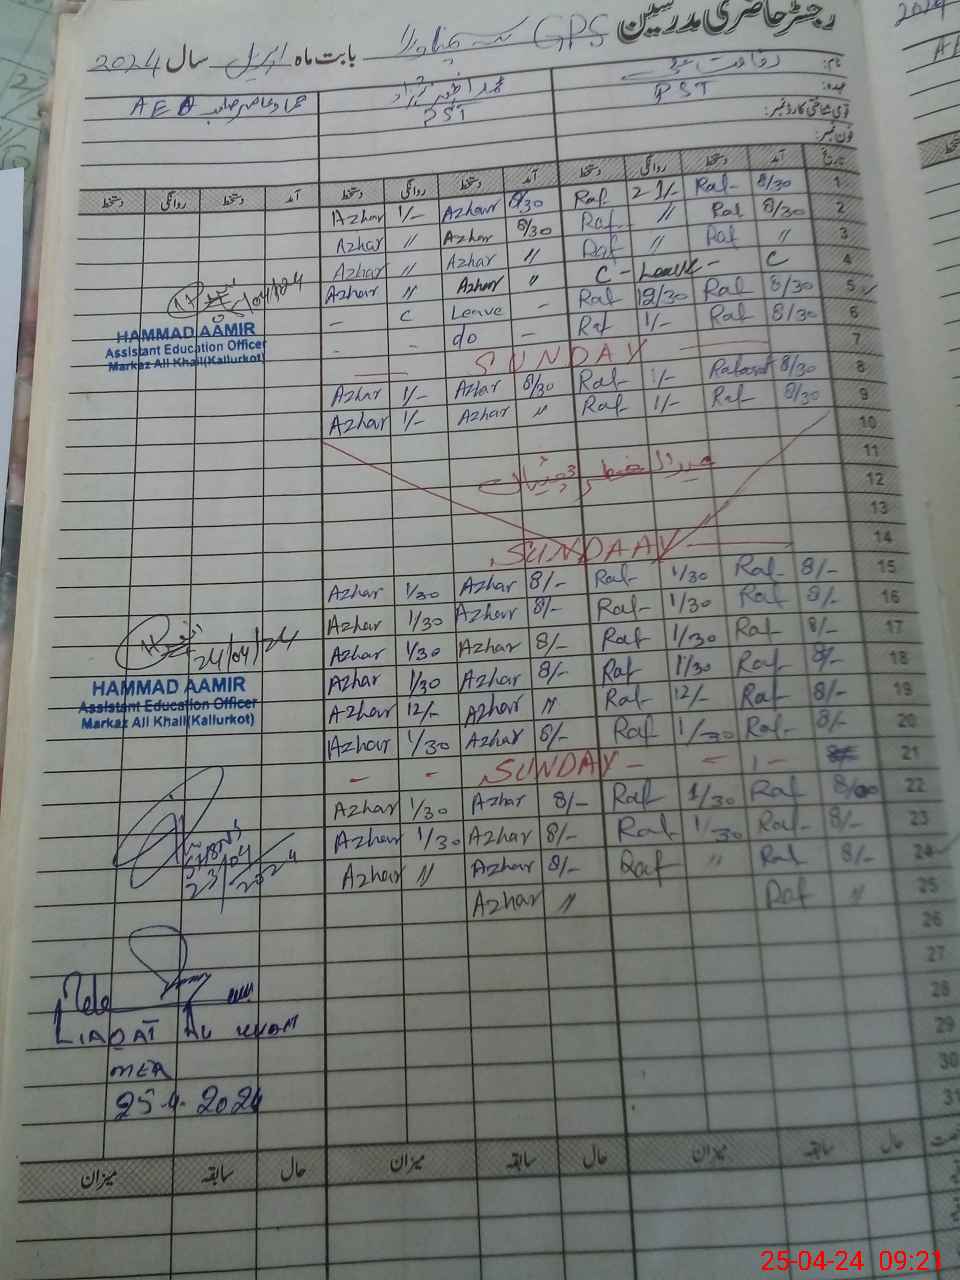 رجسٹر حاضری مدرسین GPS بابت ماہ اپریل سال 2024
نام:
عہدہ: PST PST AEO
قومی شناختی کارڈ نمبر:
فون نمبر:
تاریخ آمد دستخط روانگی دستخط آمد دستخط روانگی دستخط آمد دستخط روانگی دستخط
1 8/30 Raf 1/- Raf 8/30 Azhar 1/- Azhar
2 8/30 Raf " Raf 8/30 Azhar " Azhar
3 " Raf " Raf " Azhar " Azhar
4 C - Leave - C " Azhar " Azhar
5 8/30 Raf 12/30 Raf - Leave C -
6 8/30 Raf 1/- Raf - do - -
7 SUNDAY
8 8/30 1/- Raf 8/30 Azhar 1/- Azhar
9 8/30 Raf 1/- Raf " Azhar 1/- Azhar
10
11
عید الفطر چھٹیاں
12
13
14 SUNDAAY
15 8/- Raf 1/30 Raf 8/- Azhar 1/30 Azhar
16 8/- Raf 1/30 Raf 8/- Azhar 1/30 Azhar
17 8/- Raf 1/30 Raf 8/- Azhar 1/30 Azhar
18 8/- Raf 1/30 Raf 8/- Azhar 1/30 Azhar
19 8/- Raf 12/- Raf " Azhar 12/- Azhar
20 8/- Raf 1/30 Raf 8/- Azhar 1/30 Azhar
21 - SUNDAY - -
22 8/00 Raf 1/30 Raf 8/- Azhar 1/30 Azhar
23 8/- Raf 1/30 Raf 8/- Azhar 1/30 Azhar
24 8/- Raf " Raf 8/- Azhar " Azhar
25 " Raf " Azhar
26
27
28
29
30
31
HAMMAD AAMIR
Assistant Education Officer
Markaz Ali Khail(Kallurkot)
24/04/24
HAMMAD AAMIR
Assistant Education Officer
Markaz Ali Khail(Kallurkot)
23/04/2024
LIAQAT
MEA
25-4-2024
حال سابقہ میزان حال سابقہ میزان حال سابقہ میزان
25-04-24 09:21